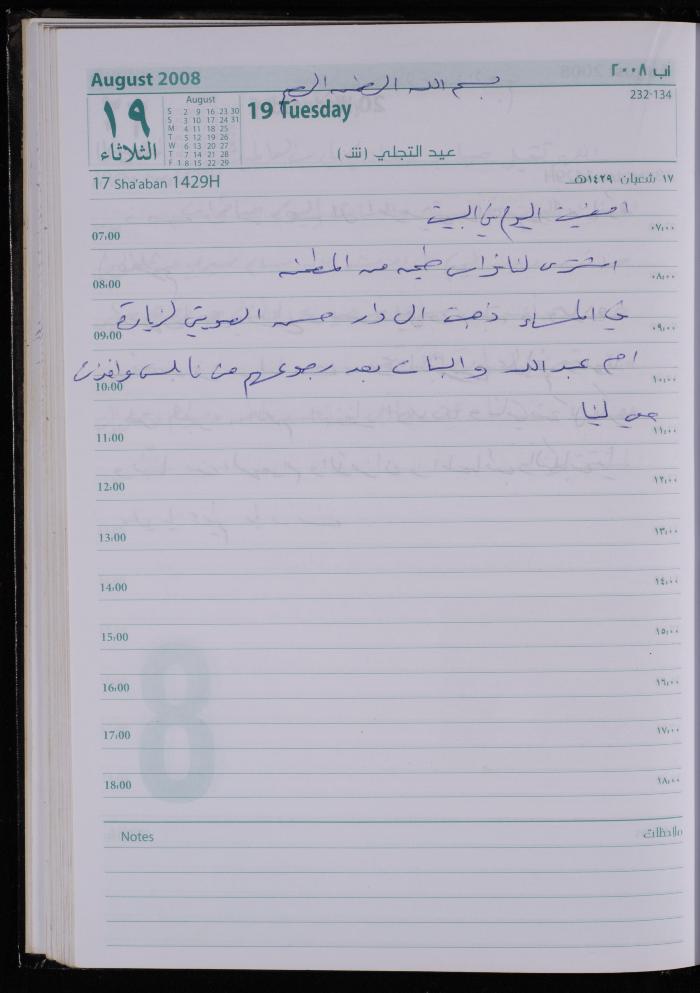 August 2008
آب ٢٠٠٨
بسم الله الرحمن الرحيم
232-134
١٩
الثلاثاء
August
S 2 9 16 23 30
S 3 10 17 24 31
M 4 11 18 25
T 5 12 19 26
W 6 13 20 27
T 7 14 21 28
F 1 8 15 22 29
19 Tuesday
عيد التجلي (ش)
17 Sha'aban 1429H
١٧ شعبان ١٤٢٩هـ
امضيت اليوم في البيت
07:00 ٠٧:٠٠
اشترى لنا فراس طبخه من المطعم
08:00 ٠٨:٠٠
في المساء ذهبت الى دار حسن الصويتي لزيارة
09:00 ٠٩:٠٠
ام عبدالله والبنات بعد رجوعهم من نابلس
10:00 ١٠:٠٠
11:00 ١١:٠٠
12:00 ١٢:٠٠
13:00 ١٣:٠٠
14:00 ١٤:٠٠
15:00 ١٥:٠٠
16:00 ١٦:٠٠
17:00 ١٧:٠٠
18:00 ١٨:٠٠
8
Notes
ملاحظات